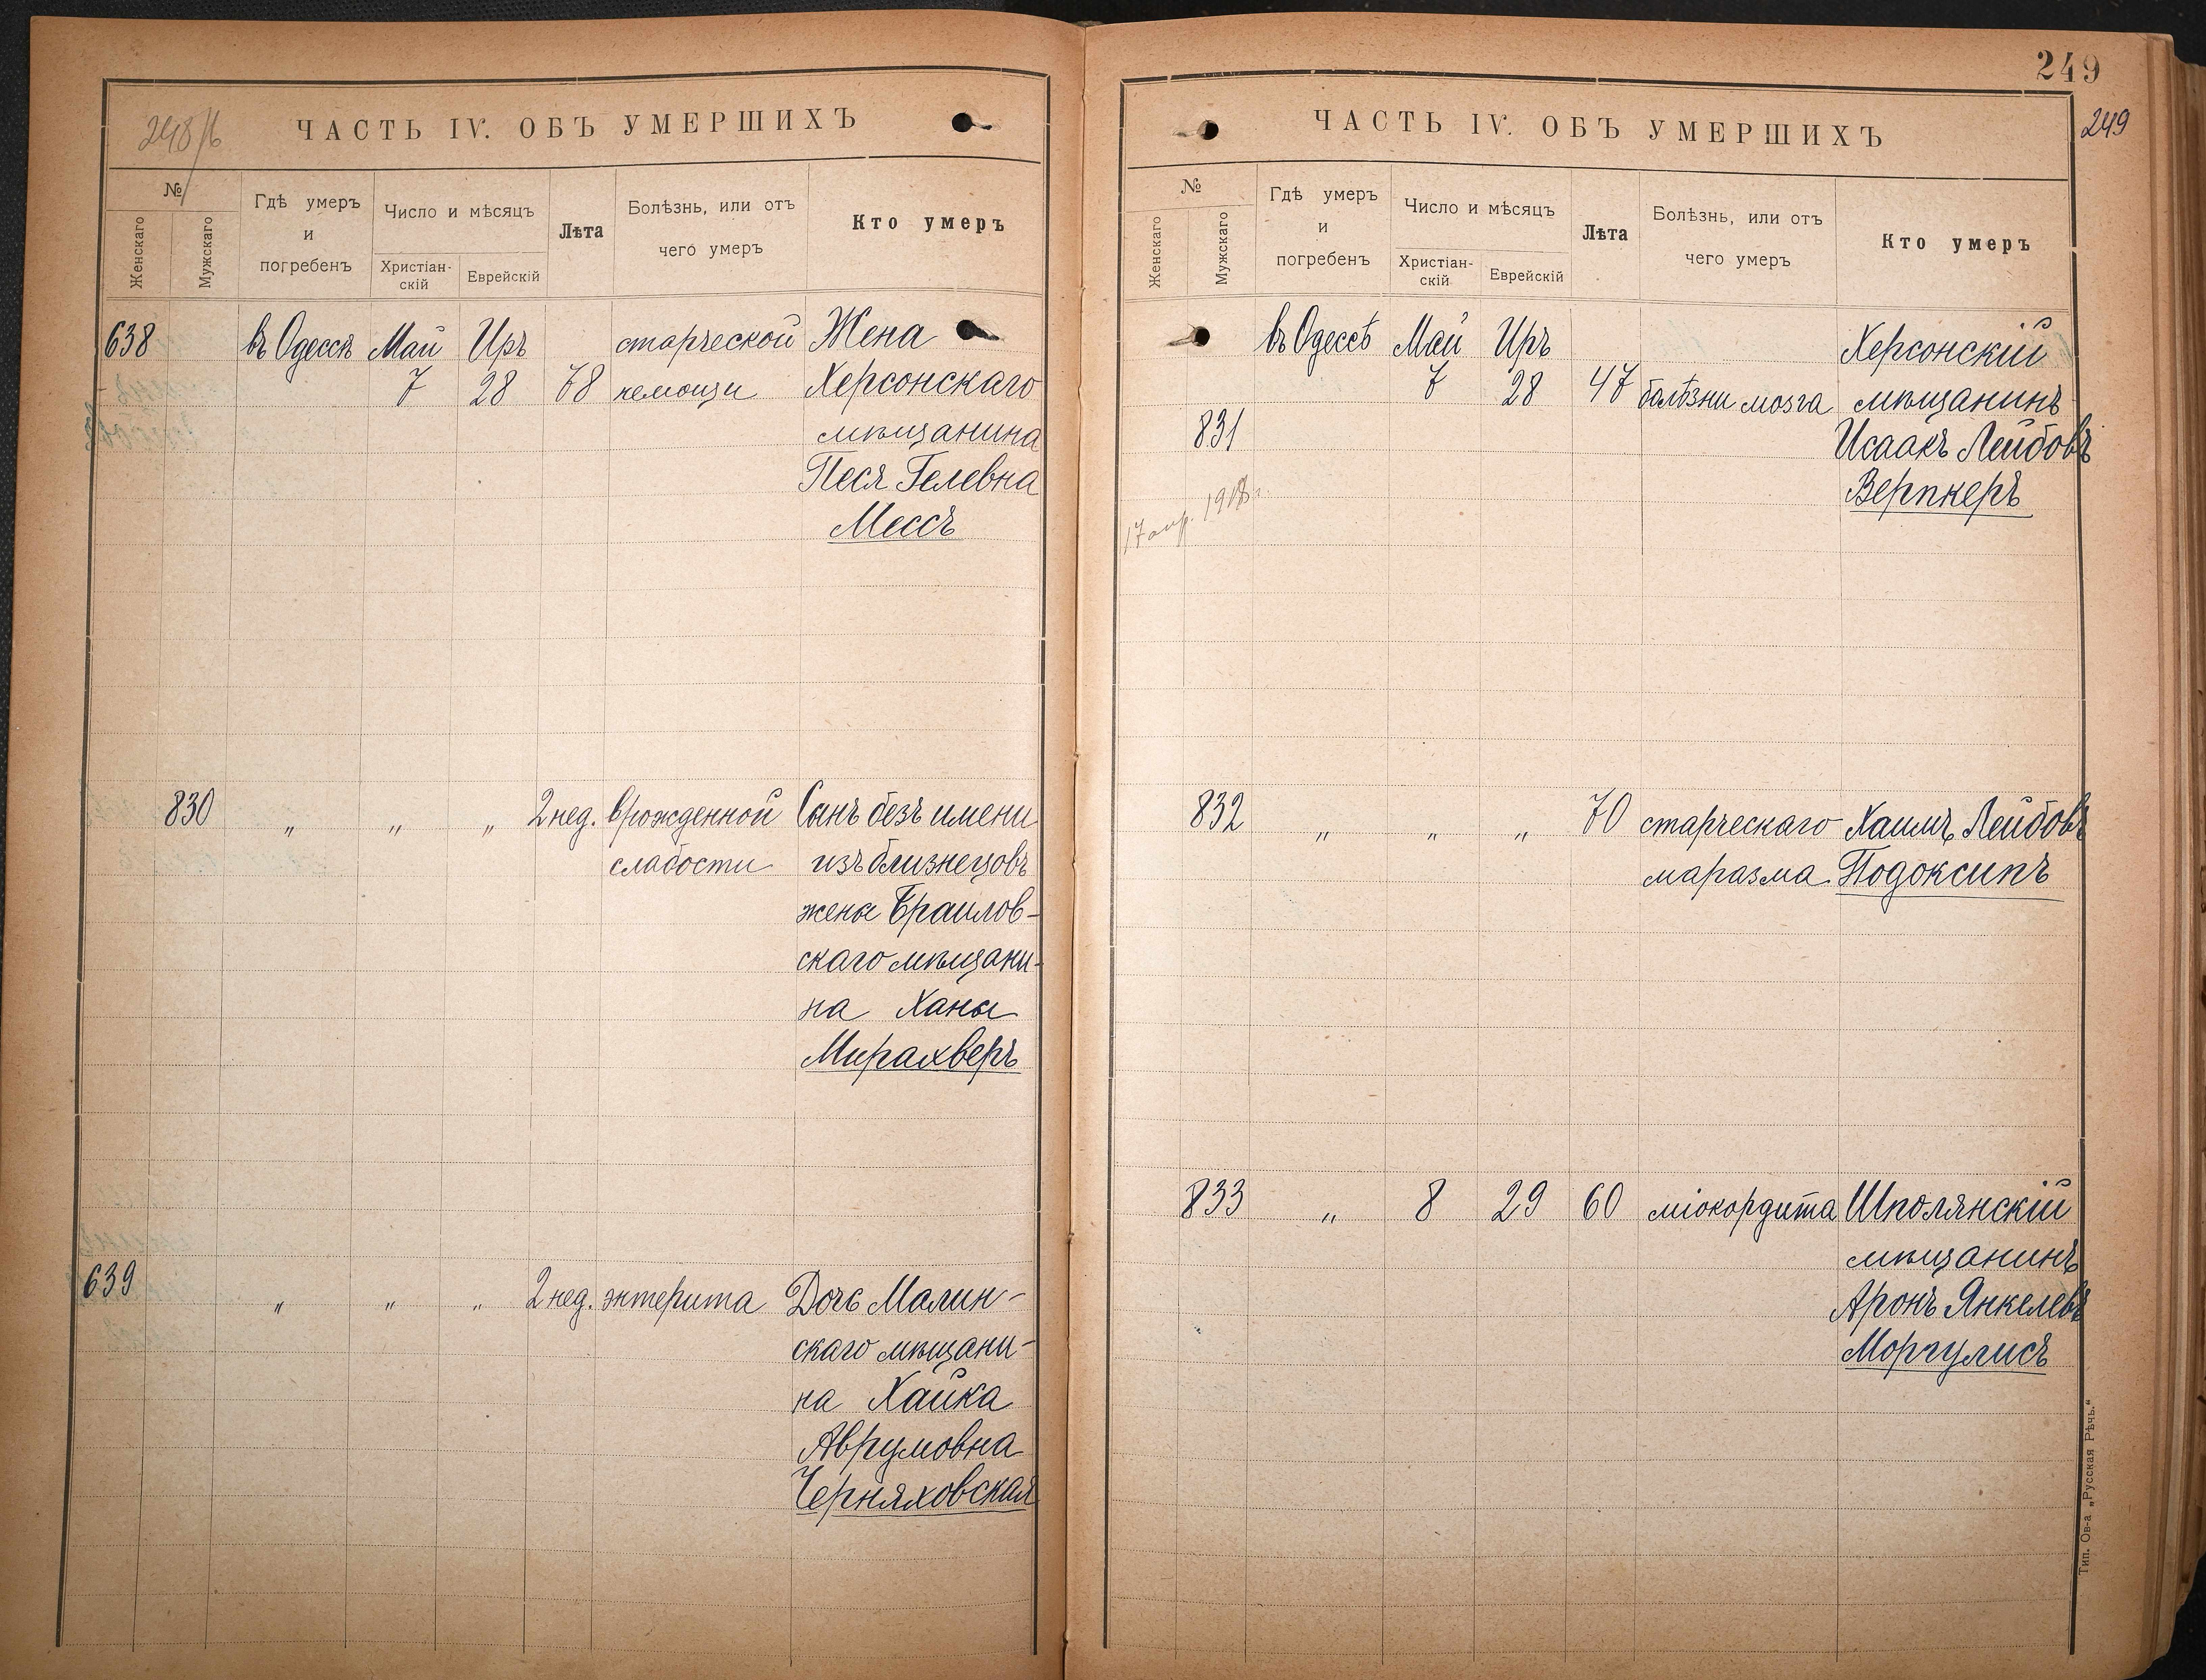 248/б
ЧАСТЬ IV. ОБЪ УМЕРШИХЪ
№
Женскаго
Мужскаго
Гдѣ умеръ
и
погребенъ
Число и мѣсяцъ
Христіан-
скій
Еврейскій
Лѣта
Болѣзнь, или отъ
чего умеръ
Кто умеръ
638 въ Одессѣ Май Иръ старческой Жена
7 28 78 немощи Херсонскаго
мѣщанина
Песя Гелевна
Мессъ
830 " " " 2 нед. врожденной Сынъ безъ имени
слабости изъ близнецовъ
жены Браилов-
скаго мѣщани-
на Ханы
Мирахверъ
639 " " " 2 нед. энтерита Дочь Малин-
скаго мѣщани-
на Хайка
Аврумовна
Черняховская
249
249
ЧАСТЬ IV. ОБЪ УМЕРШИХЪ
№
Женскаго
Мужскаго
Гдѣ умеръ
и
погребенъ
Число и мѣсяцъ
Христіан-
скій
Еврейскій
Лѣта
Болѣзнь, или отъ
чего умеръ
Кто умеръ
въ Одессѣ Май Иръ Херсонскій
7 28 47 болѣзни мозга мѣщанинъ
831 Исаакъ Лейбовъ
Верпкеръ
17 апр.
832 " " " 70 старческаго Хаимъ Лейбовъ
маразма Подоксипъ
833 " 8 29 60 міокордита Шполянскій
мѣщанинъ
Аронъ Янкелевъ
Моргулисъ
Тип. Ов-а „Русская Рѣчь."